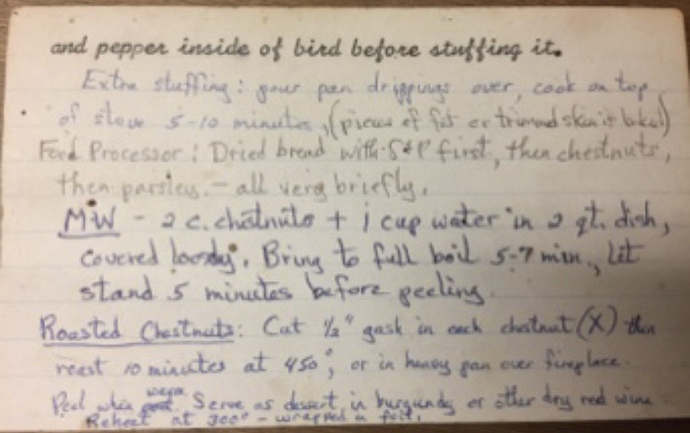 and pepper inside of bird before stuffing it.
Extra stuffing: pour pan drippings over, cook on top
of stove 5-10 minutes, (pieces of fat or trimmed skin if baked)
Food Processor: Dried bread with S&P first, then chestnuts,
then parsley - all very briefly.
MW - 2 c. chestnuts + 1 cup water in 2 qt. dish,
covered loosely. Bring to full boil 5-7 min., let
stand 5 minutes before peeling.
Roasted Chestnuts: Cut 1/2" gash in each chestnut (X) then
roast 10 minutes at 450°, or in heavy pan over fireplace.
Peel when warm. Serve as dessert in burgundy or other dry red wine.
Reheat at 300° - wrapped in foil.